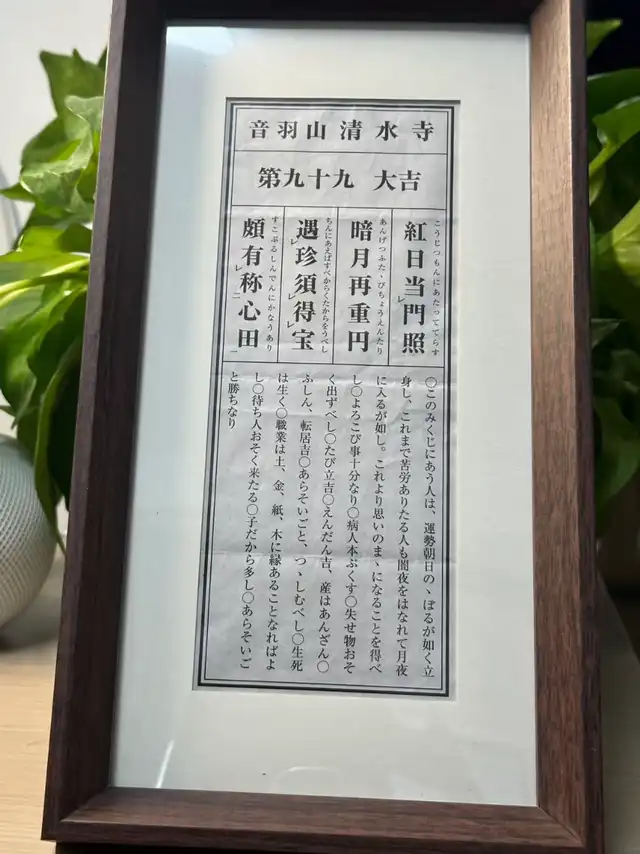 音羽山清水寺
第九十九 大吉
紅日当門照
こうじつもんにあたっててらす
暗月再重円
あんげつふたゝびちょうえんたり
遇珍須得宝
ちんにあえばすべからくたからをうべし
頗有称心田
すこぶるしんでんにかなうあり
〇このみくじにあう人は、運勢朝日のゝぼるが如く立
身し、これまで苦労ありたる人も闇夜をはなれて月夜
に入るが如し。これより思いのまゝになることを得べ
し〇よろこび事十分なり〇病人本ぷくす〇失せ物おそ
く出ずべし〇たび立吉〇えんだん吉、産はあんざん〇
ふしん、転居吉〇あらそいごと、つゝしむべし〇生死
は生く〇職業は土、金、紙、木に縁あることなればよ
し〇待ち人おそく来たる〇子だから多し〇あらそいご
と勝ちなり